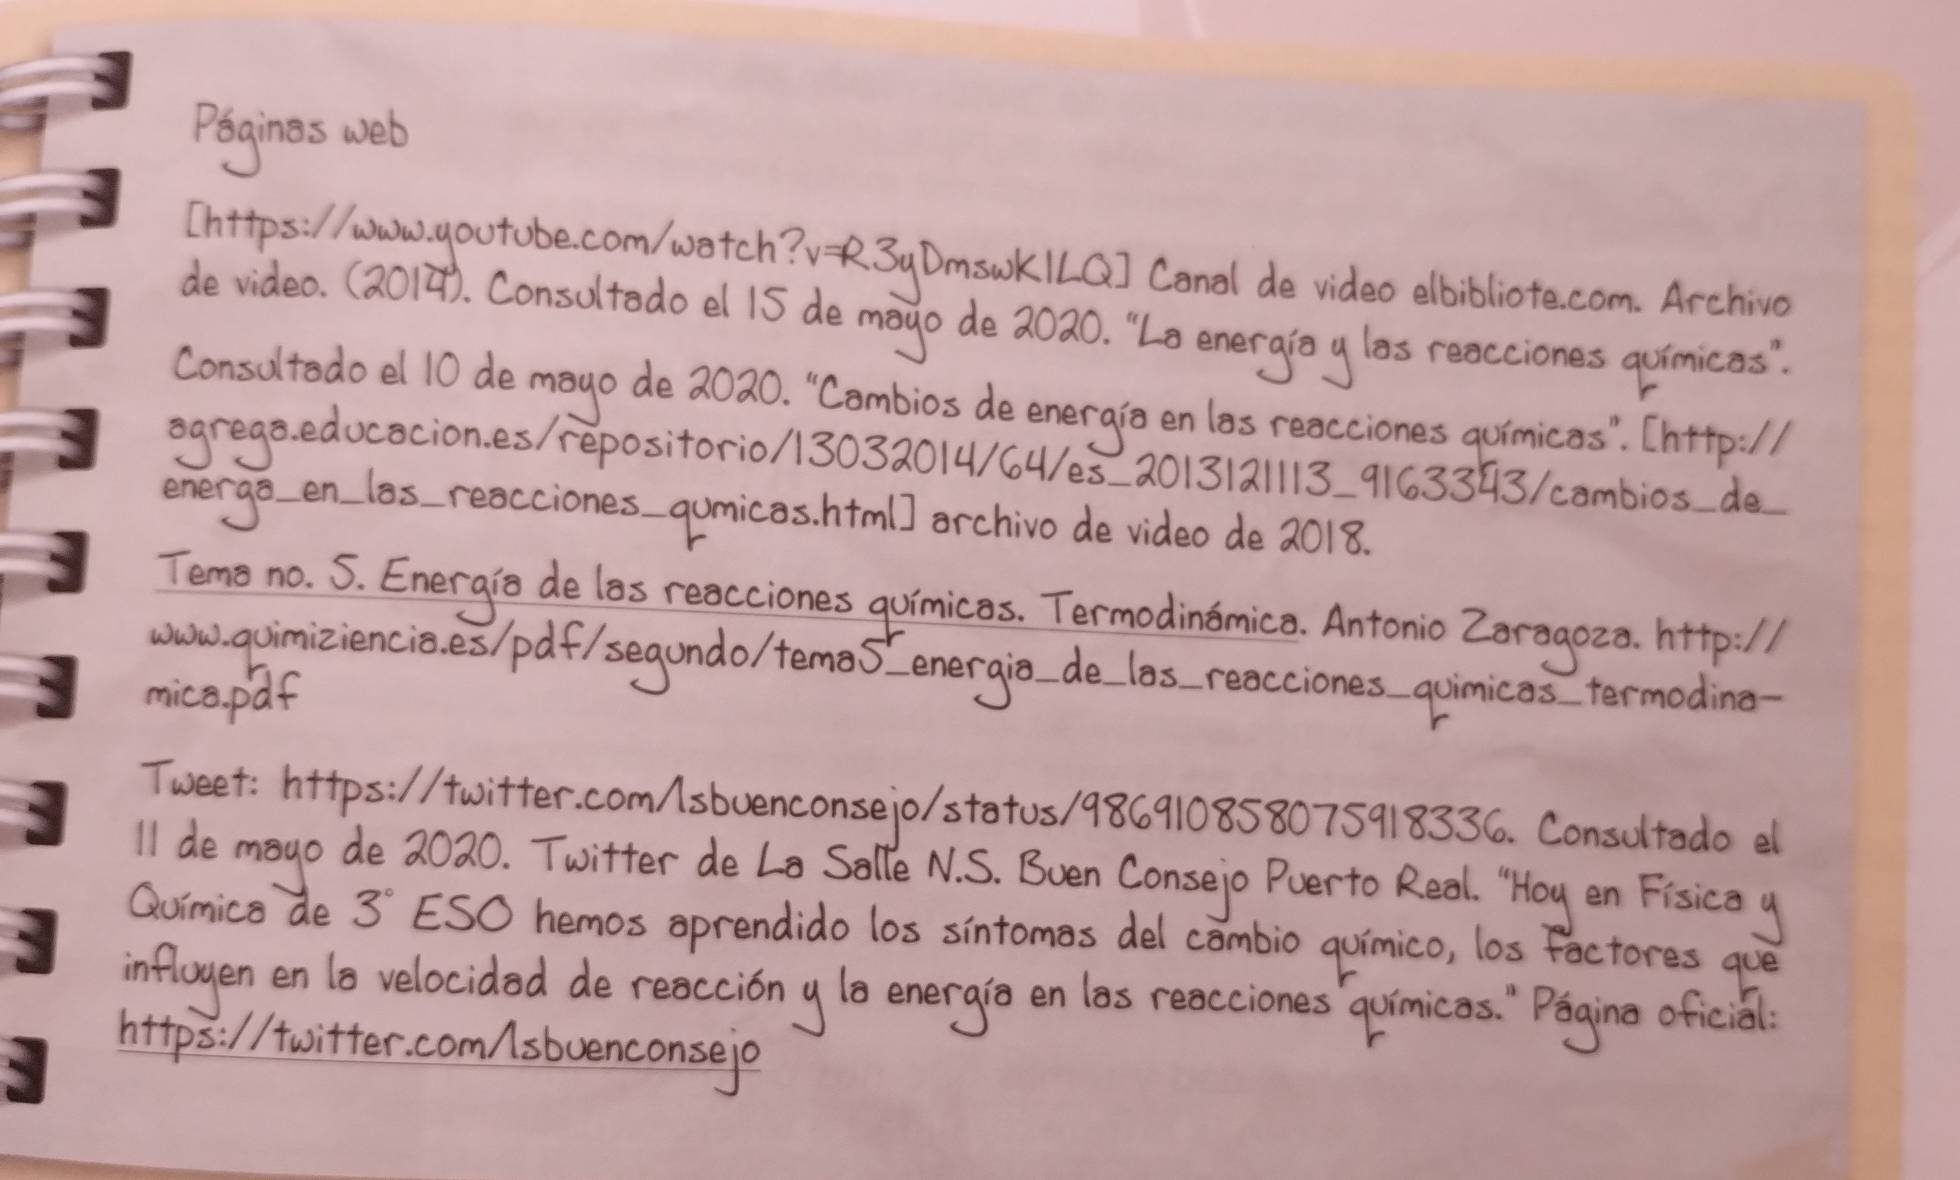 Páginas web
[https://www.youtube.com/watch?v=R3yDmswK1LQ] Canal de video elbibliote.com. Archivo
de video. (2014). Consultado el 15 de mayo de 2020. "La energía y las reacciones químicas".
Consultado el 10 de mayo de 2020. "Cambios de energía en las reacciones químicas". [http://
agrega.educacion.es/repositorio/13032014/64/es_2013121113_9163343/cambios_de_
energa_en_las_reacciones_qumicas.html] archivo de video de 2018.
Tema no. 5. Energía de las reacciones químicas. Termodinámica. Antonio Zaragoza. http://
www.quimiziencia.es/pdf/segundo/tema5_energia_de_las_reacciones_quimicas_termodina-
mica.pdf
Tweet: https://twitter.com/lsbuenconsejo/status/986910858075918336. Consultado el
11 de mayo de 2020. Twitter de La Salle N.S. Buen Consejo Puerto Real. "Hoy en Física y
Química de 3° ESO hemos aprendido los síntomas del cambio químico, los factores que
influyen en la velocidad de reacción y la energía en las reacciones químicas." Página oficial:
https://twitter.com/lsbuenconsejo